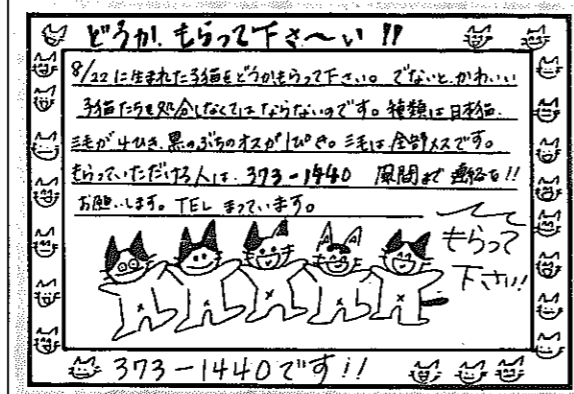 どうか、もらって下さ〜い!!
8/22に生まれた子猫をどうかもらって下さい。でないと、かわいい
子猫たちを処分しなくてはならないのです。種類は日本猫.
三毛が4ひき、黒のぶちのオスが1ぴき。三毛は全部メスです。
もらっていただける人は、373-1440 風間まで連絡を!!
お願いします。TELまっています。
もらって
下さい!!
373-1440です!!